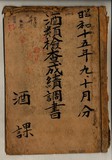 昭和十五年九十月分
酒類検査成績調書
酒課